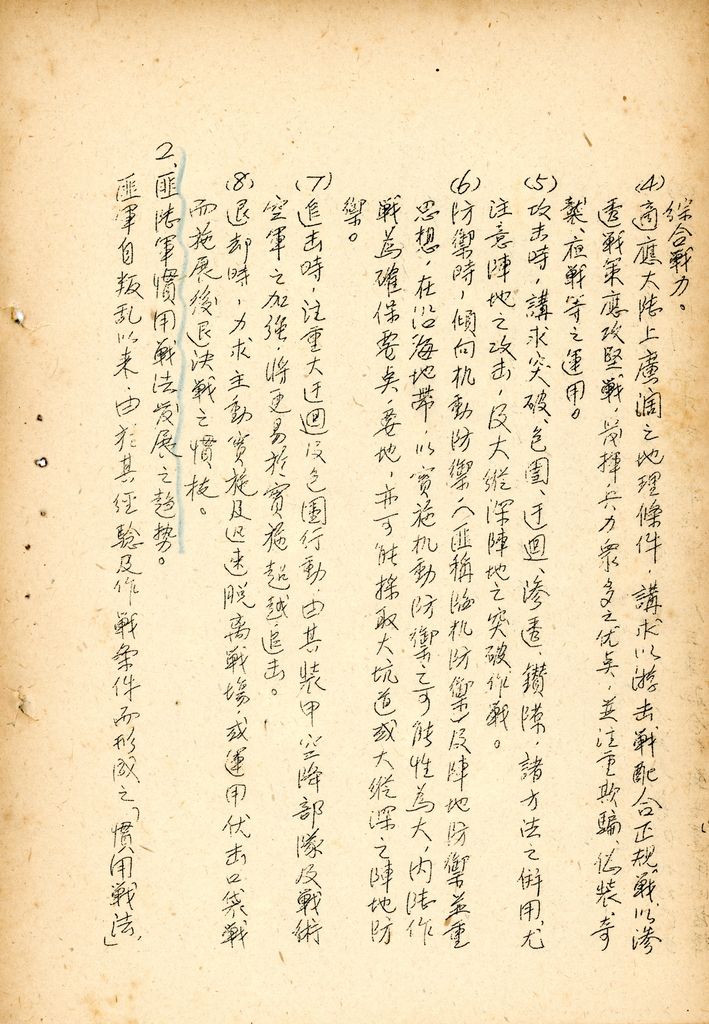 綜合戰力。
(4)適應大陸上廣濶之地理條件，講求以游击戰配合正規戰，以滲
透戰策應攻堅戰，发揮兵力衆多之优点，並注重欺騙、偽裝、奇
襲、夜戰等之運用。
(5)攻击時，講求突破、包圍、迂迴、滲透、鑽隙，諸方法之併用，尤
注意陣地之攻击，及大縱深陣地之突破作戰。
(6)防禦時，傾向机動防禦（匪稱臨机防禦）及陣地防禦並重
思想，在沿海地帶，以實施机動防禦之可能性為大，內陸作
戰為確保要点、要地，亦可能採取大坑道或大縱深之陣地防
禦。
(7)追击時，注重大迂迴及包圍行動，由其裝甲空降部隊及戰術
空軍之加強，將更易於實施超越追击。
(8)退却時，力求主動實施及迅速脫离戰場，或運用伏击口袋戰
而施展後退決戰之慣技。
2.匪陸軍慣用戰法发展之趨勢。
匪軍自叛乱以来，由於其經驗及作戰條件而形成之「慣用戰法」，